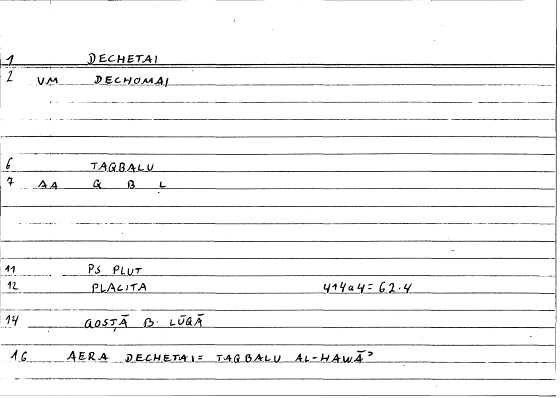 1 DECHETAI
2 VM DECHOMAI
6 TAQBALU
7 AA Q B L
11 PS PLUT
12 PLACITA 414a4=62.4
14 QOSṬĀ B. LŪQĀ
16 AERA DECHETAI= TAQBALU AL-HAWĀʾ